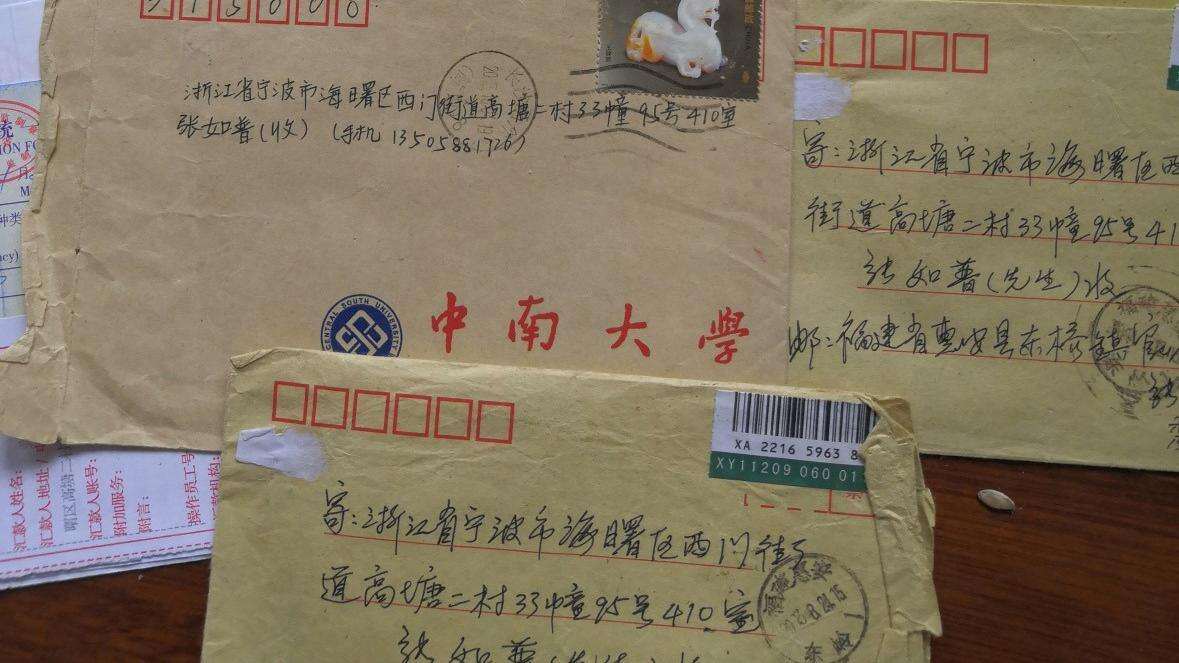 315000
浙江省宁波市海曙区西门街道高塘二村33幢95号410室
张如普(收) (手机 13505881726)
CENTRAL SOUTH UNIVERSITY
中南大学
寄:浙江省宁波市海曙区西
街道高塘二村33幢95号41
张如普(先生)收
邮:福建省惠安县东桥镇
XA 2216 5963 8
XY11209 060 01
寄:浙江省宁波市海曙区西门街
道高塘二村33幢95号410室
张如普
东岭
汇款人姓名:
汇款人地址:
曙区高塘二
汇款人账号:
附加服务:
附言:
操作员工号
种类